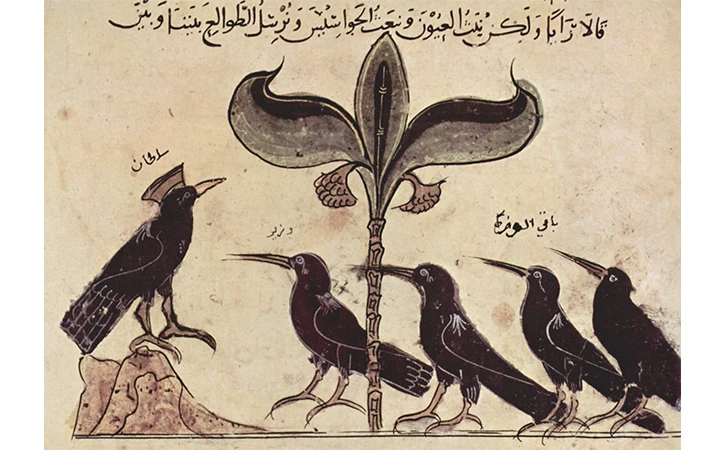 قالا رأيا ولكن نبث العيون ونبعث الجواسيس ونرسل الطوالع بيننا وبين
سلطان
وزير
باقي الوزراء